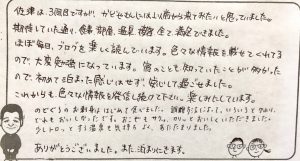 佐津は、3回目ですが、かどやさんには以前から来てみたいと思っていました。
期待していた通り、食事、部屋、温泉、接客 全て満足できました。
ほぼ毎日、ブログを楽しく読んでいます。色々な情報を載せてくれてる
ので、大変参考になっています。宿のことも知っていたことが多かった
ので 初めて泊まった感じはせず、安心して過ごせました。
これからも色々な情報を発信し続けて下さい。楽しみにしています。
のどぐろのお刺身は はじめて食べました。
どれもおいしかったです。
少しトロッとする温泉も気持ちよく、あたたまりました。
ありがとうございました。また泊まりにきます。